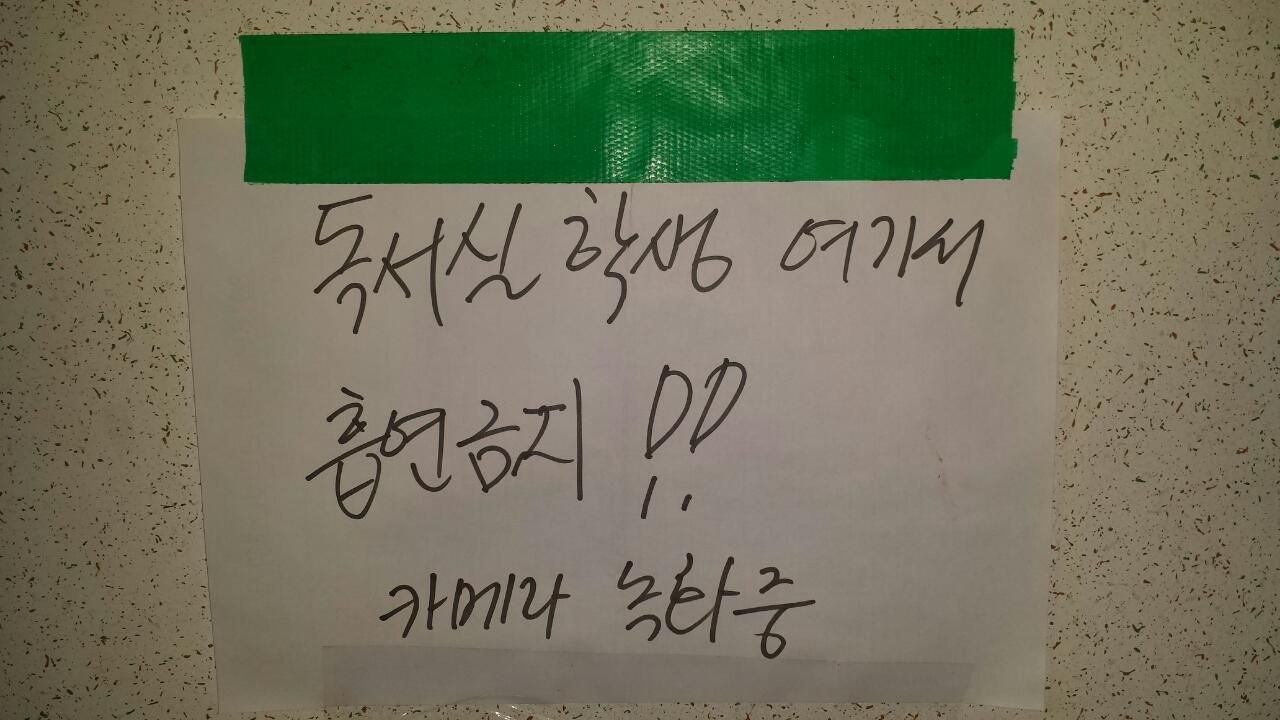 독서실 학생 여기서
흡연금지 !!
카메라 녹화중